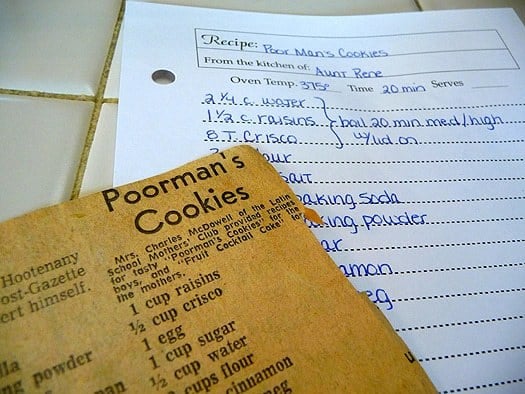 Recipe: Poor Man's Cookies
From the kitchen of: Aunt Rene
Oven Temp. 375° Time 20 min Serves
2 1/4 c. water
1 1/2 c. raisins
8 T. Crisco
boil 20 min med/high
w/lid on
baking soda
powder
Poorman's
Cookies
Mrs. Charles McDowell of the Latin
School Mothers' Club provided recipes
for tasty "Poorman's Cookies" for the
boys, and "Fruit Cocktail Cake" for
the mothers.
1 cup raisins
1/2 cup crisco
1 egg
1 cup sugar
1/2 cup water
cups flour
cinnamon
Hootenany
ost-Gazette
ert himself.
powder